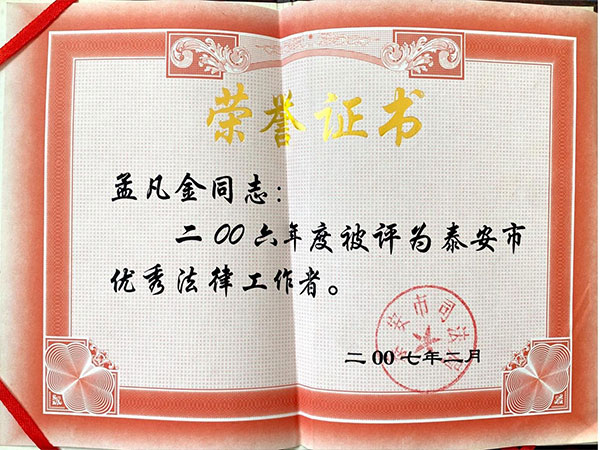 荣誉证书
孟凡金同志：
二00六年度被评为泰安市
优秀法律工作者。
泰安市司法局
二00七年二月